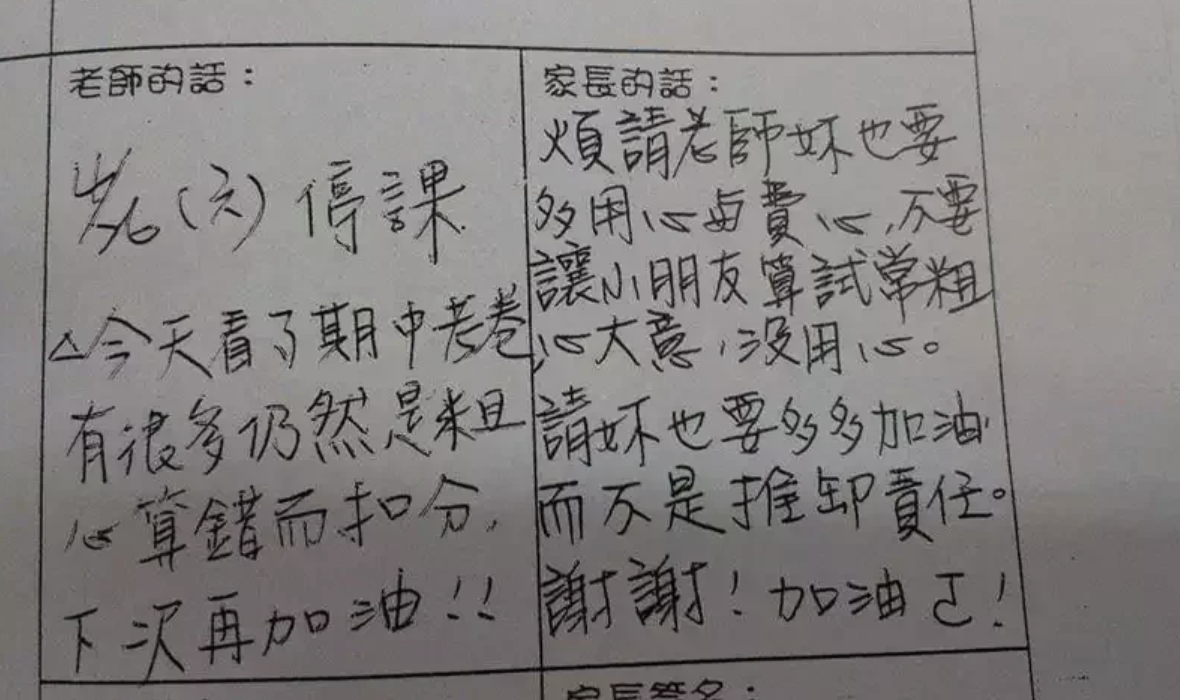 老師的話：
(六) 停課
△今天看了期中考卷
有很多仍然是粗
心算錯而扣分,
下次再加油!!
家長的話：
煩請老師妳也要
多用心 費心,不要
讓小朋友算試常粗
心大意,沒用心。
請妳也要多多加油
而不是推卸責任。
謝謝!加油ㄛ!
家長簽名：